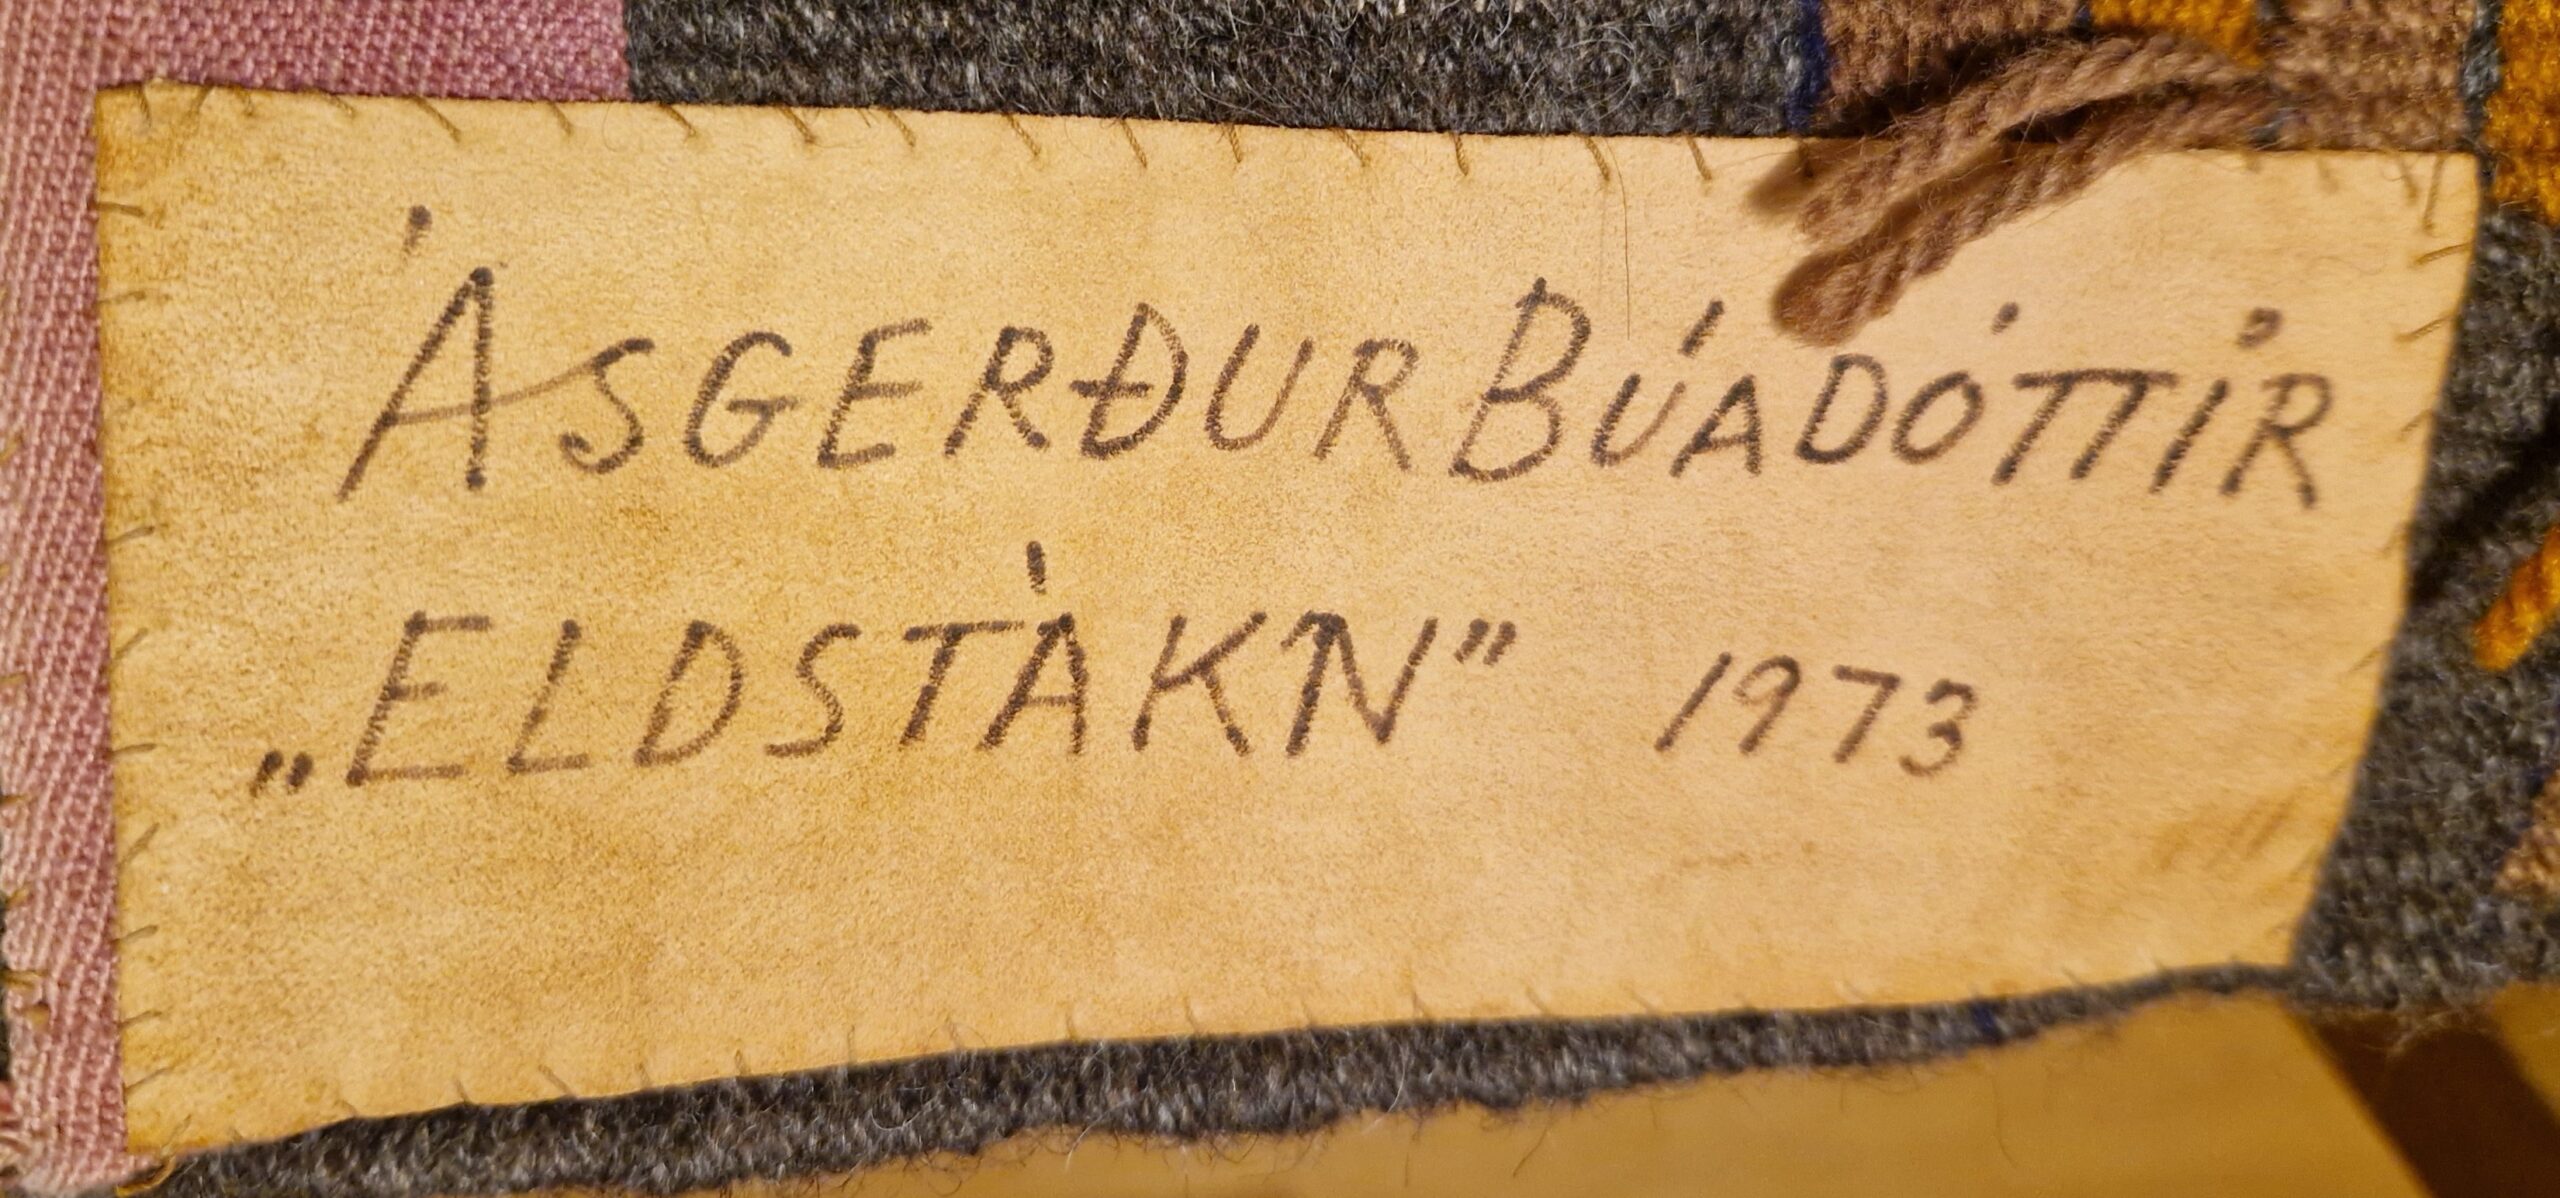 ÁSGERÐUR BÚADÓTTIR
„ELDSTÁKN” 1973